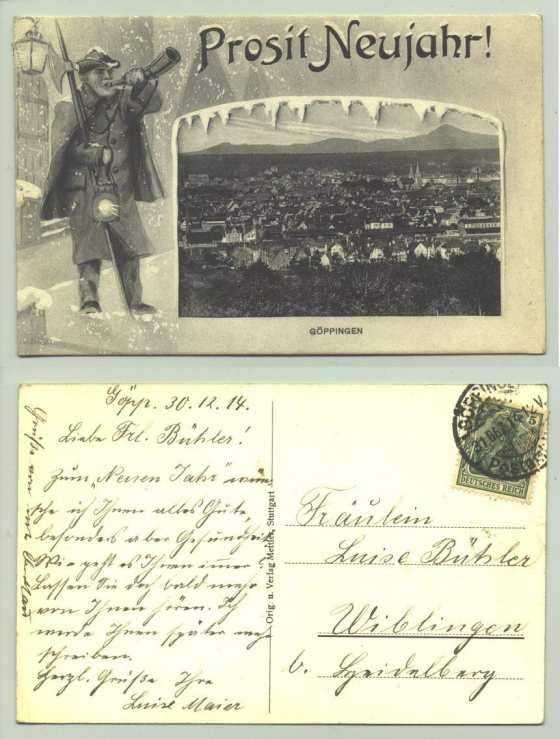 Prosit Neujahr!
GÖPPINGEN
Göpp. 30.12.14.
Liebe Frl. Bühler!
Zum "Neuen Jahr" wün-
sche ich Ihnen alles Gute,
besonders aber Gesundheit.
Wie geht es Ihnen immer?
Lassen Sie doch bald mehr
von Ihnen hören. Ich
werde Ihnen später mehr
schreiben.
Herzl. Grüße Ihre
Luise Maier
Grüße an
Orig. u. Verlag Mettler, Stuttgart
DEUTSCHES REICH
Fräulein
Luise Bühler
Wiblingen
b. Heidelberg